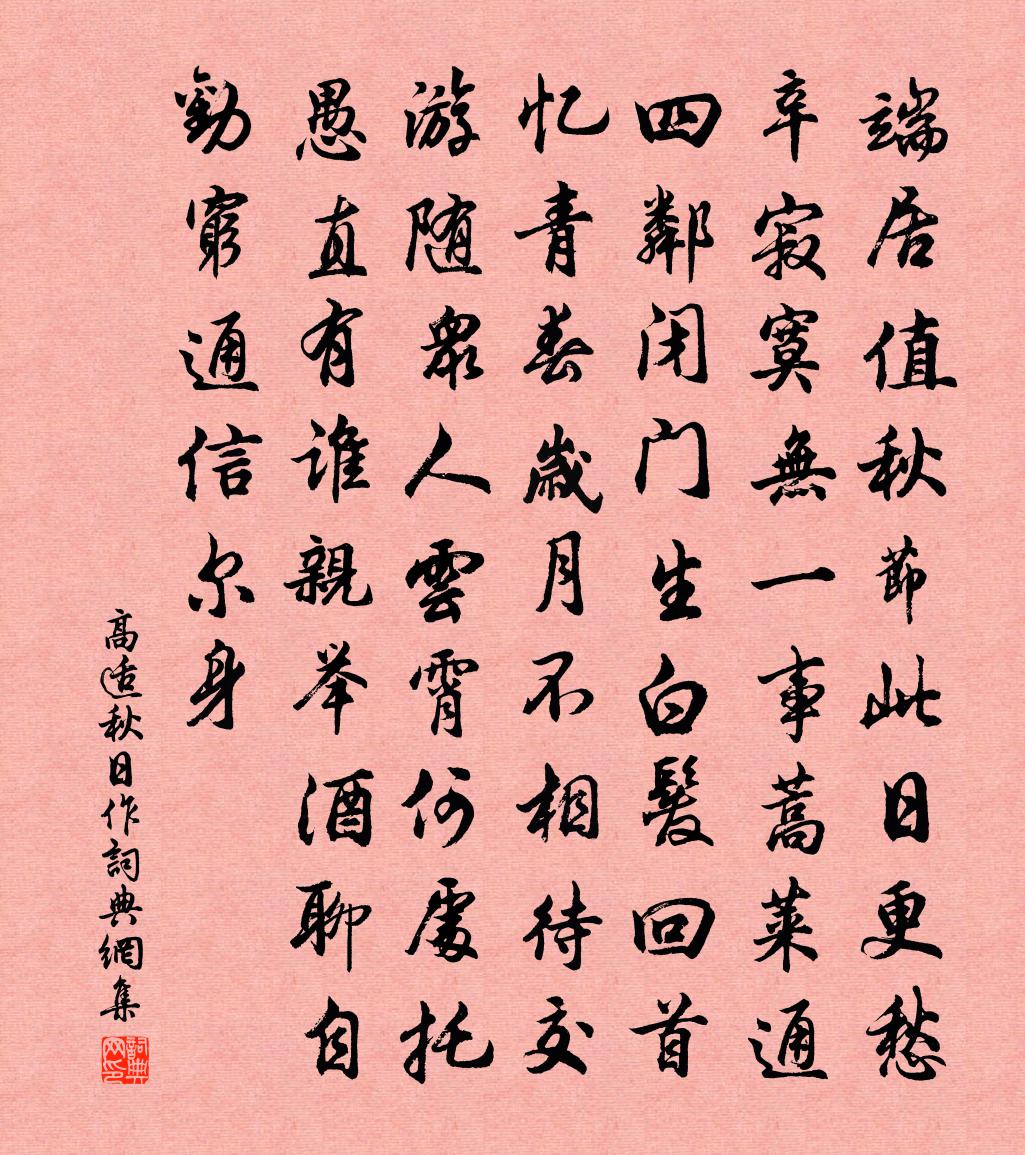 端居值秋節此日更愁
辛寂寞無一事蒿萊通
四鄰闭门生白髮回首
忆青春歲月不相待交
游随衆人雲霄何處托
愚直有谁親举酒聊自
勸窮通信尔身
高适秋日作詞典網集
詞典网印